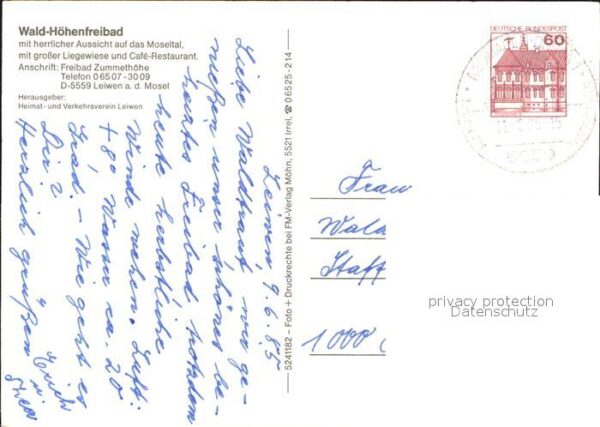 Wald-Höhenfreibad
mit herrlicher Aussicht auf das Moseltal,
mit großer Liegewiese und Café-Restaurant.
Anschrift: Freibad Zummethöhe
Telefon 0 65 07 - 30 09
D-5559 Leiwen a. d. Mosel
Herausgeber:
Heimat- und Verkehrsverein Leiwen
Leiwen, 9.6.85
Liebe Waltraut, wir ge-
nießen unser schönes be-
heiztes Freibad trotzdem
heute herbstliche
Winde wehen. Luft:
+ 8° Wasser ca. 20
Grad. - Wie geht es
Dir?
Herzlich grüßen
Erich
u.
5241182 - Foto + Druckrechte bei FM-Verlag Möhn, 5521 Irrel, ☎ 0 65 25 - 214
DEUTSCHE BUNDESPOST
60
Frau
Wald
Staff
1000
privacy protection
Datenschutz